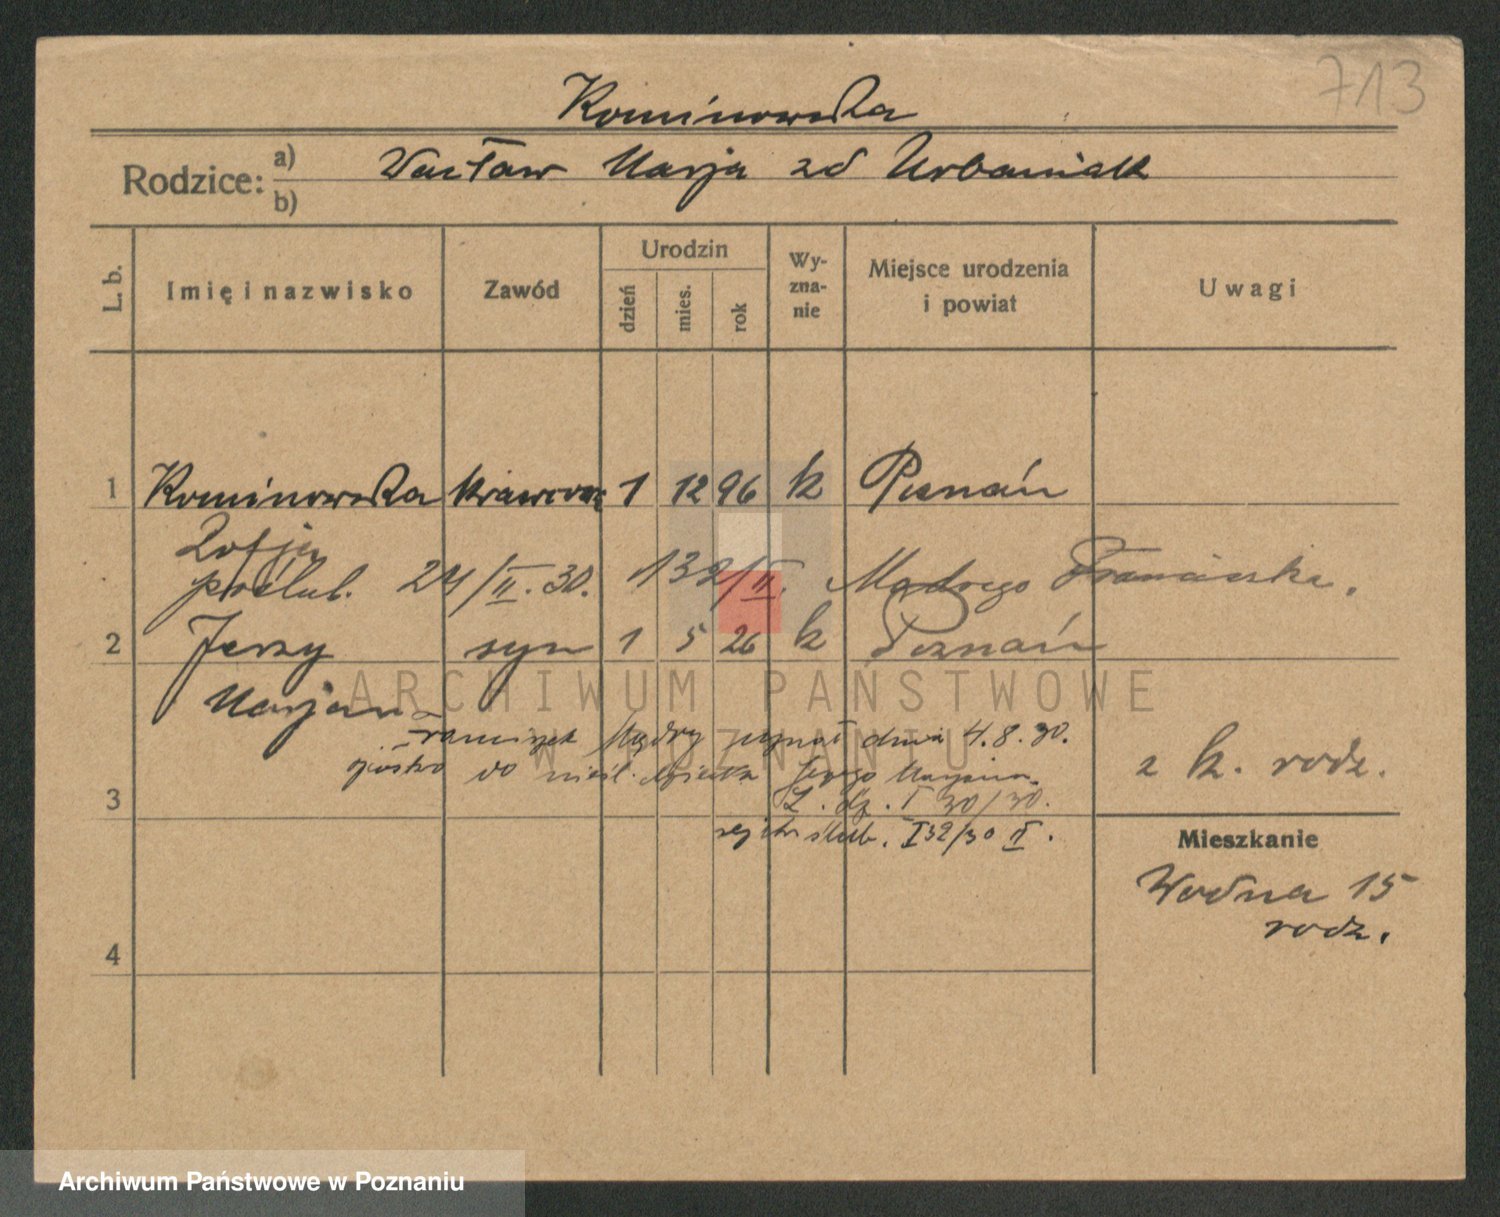 713
Kominowska
Rodzice: a) b) Wacław Marja zd Urbaniak
L. b. Imię i nazwisko Zawód Urodzin dzień mies. rok Wy-zna-nie Miejsce urodzenia i powiat Uwagi
1 Kominowska krawcowa 1 12 96 k Poznań
Zofja
poślub. 24/II. 30. 132/II. Mądrego Franciszka.
2 Jerzy syn 1 5 26 k Poznań
Marjan
ARCHIWUM PAŃSTWOWE
W POZNANIU
Franciszek Mądry uznał dnia 4.8.30.
ojcostwo do nieśl. dziecka Jerzego Marjana
z k. rodz.
3 L. dz. I 30/30.
Mieszkanie
rejstr ślub. I 132/30 II.
Wodna 15
rodz.
4
Archiwum Państwowe w Poznaniu